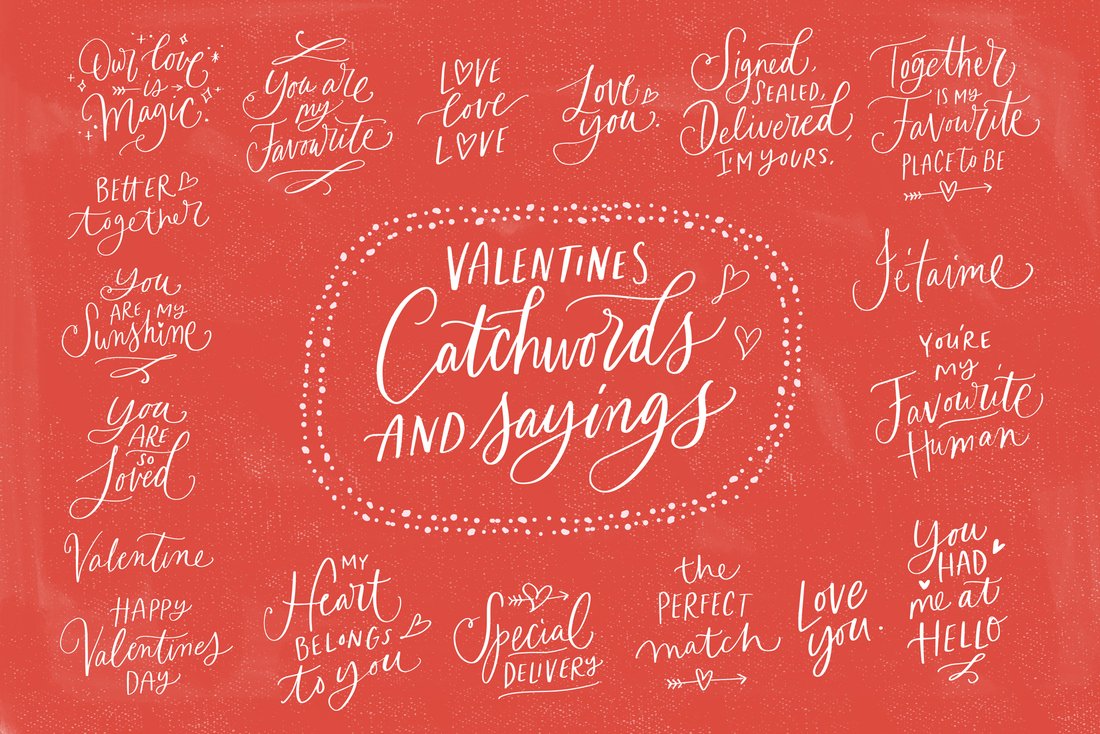 Our love
is
Magic.
You are
my
Favourite
LOVE
love
LOVE
Love
you.
Signed,
SEALED,
Delivered,
I'M YOURS.
Together
IS MY
Favourite
PLACE to BE
BETTER
together
You
ARE MY
Sunshine
You
ARE
so
Loved
Valentine
HAPPY
Valentines
DAY
VALENTINES
Catchwords
AND sayings
Je t'aime
YOU'RE
MY
Favourite
Human
MY
Heart
BELONGS
to you
Special
DELIVERY
the
PERFECT
match
LOVE
you.
You
HAD
me at
HELLO